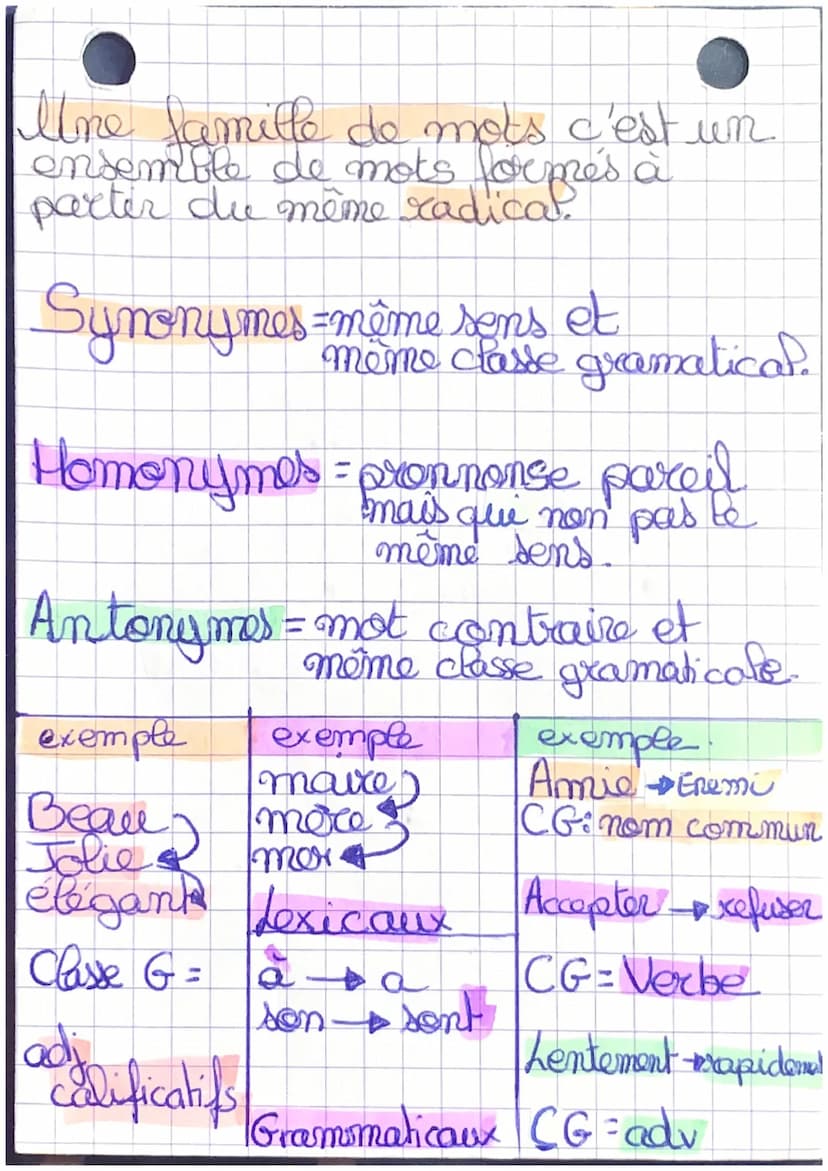 Une famille de mots c'est un
ensemble de mots formés à
partir du même radical.
Synonymes = même sens et
même classe gramatical.
Homonymes = pronnonse pareil
mais qui non pas le
même sens.
Antonymes = mot contraire et
même classe gramaticale.
exemple
Beau
Jolie
élégant
Classe G =
adj
calificatifs
exemple
maire
mère
mer
Lexicaux
à → a
son → sont
Grammaticaux
exemple.
Amie → Enemi
CG: nom commun
Accepter → refuser
CG = Verbe
Lentement → rapidement
CG = adv